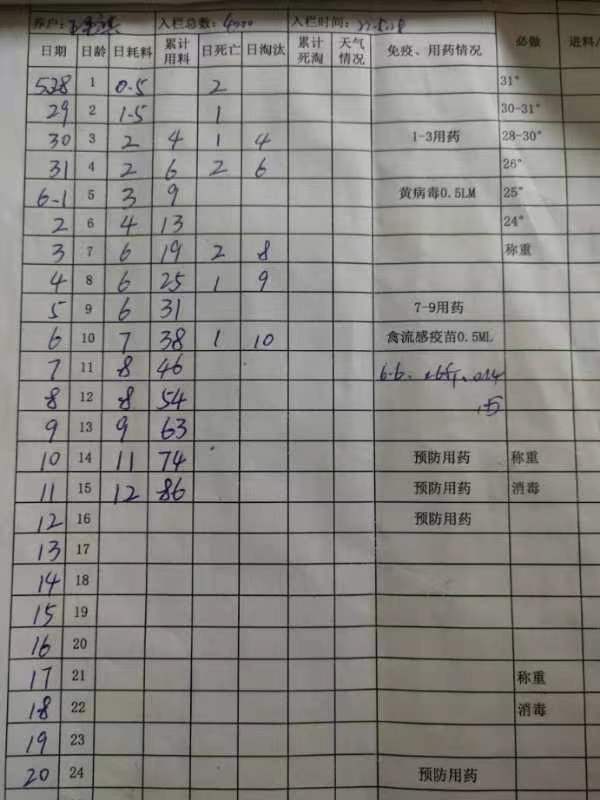 养户: 入栏总数: 4500 入栏时间:
日期 日龄 日耗料 累计用料 日死亡 日淘汰 累计死淘 天气情况 免疫、用药情况 必做 进料/
528 1 0.5 2 31°
29 2 1.5 1 30-31°
30 3 2 4 1 4 1-3用药 28-30°
31 4 2 6 2 6 26°
6-1 5 3 9 黄病毒0.5LM 25°
2 6 4 13 24°
3 7 6 19 2 8 称重
4 8 6 25 1 9
5 9 6 31 7-9用药
6 10 7 38 1 10 禽流感疫苗0.5ML
7 11 8 46 6.6.
8 12 8 54
9 13 9 63
10 14 11 74 预防用药 称重
11 15 12 86 预防用药 消毒
12 16 预防用药
13 17
14 18
15 19
16 20
17 21 称重
18 22 消毒
19 23
20 24 预防用药